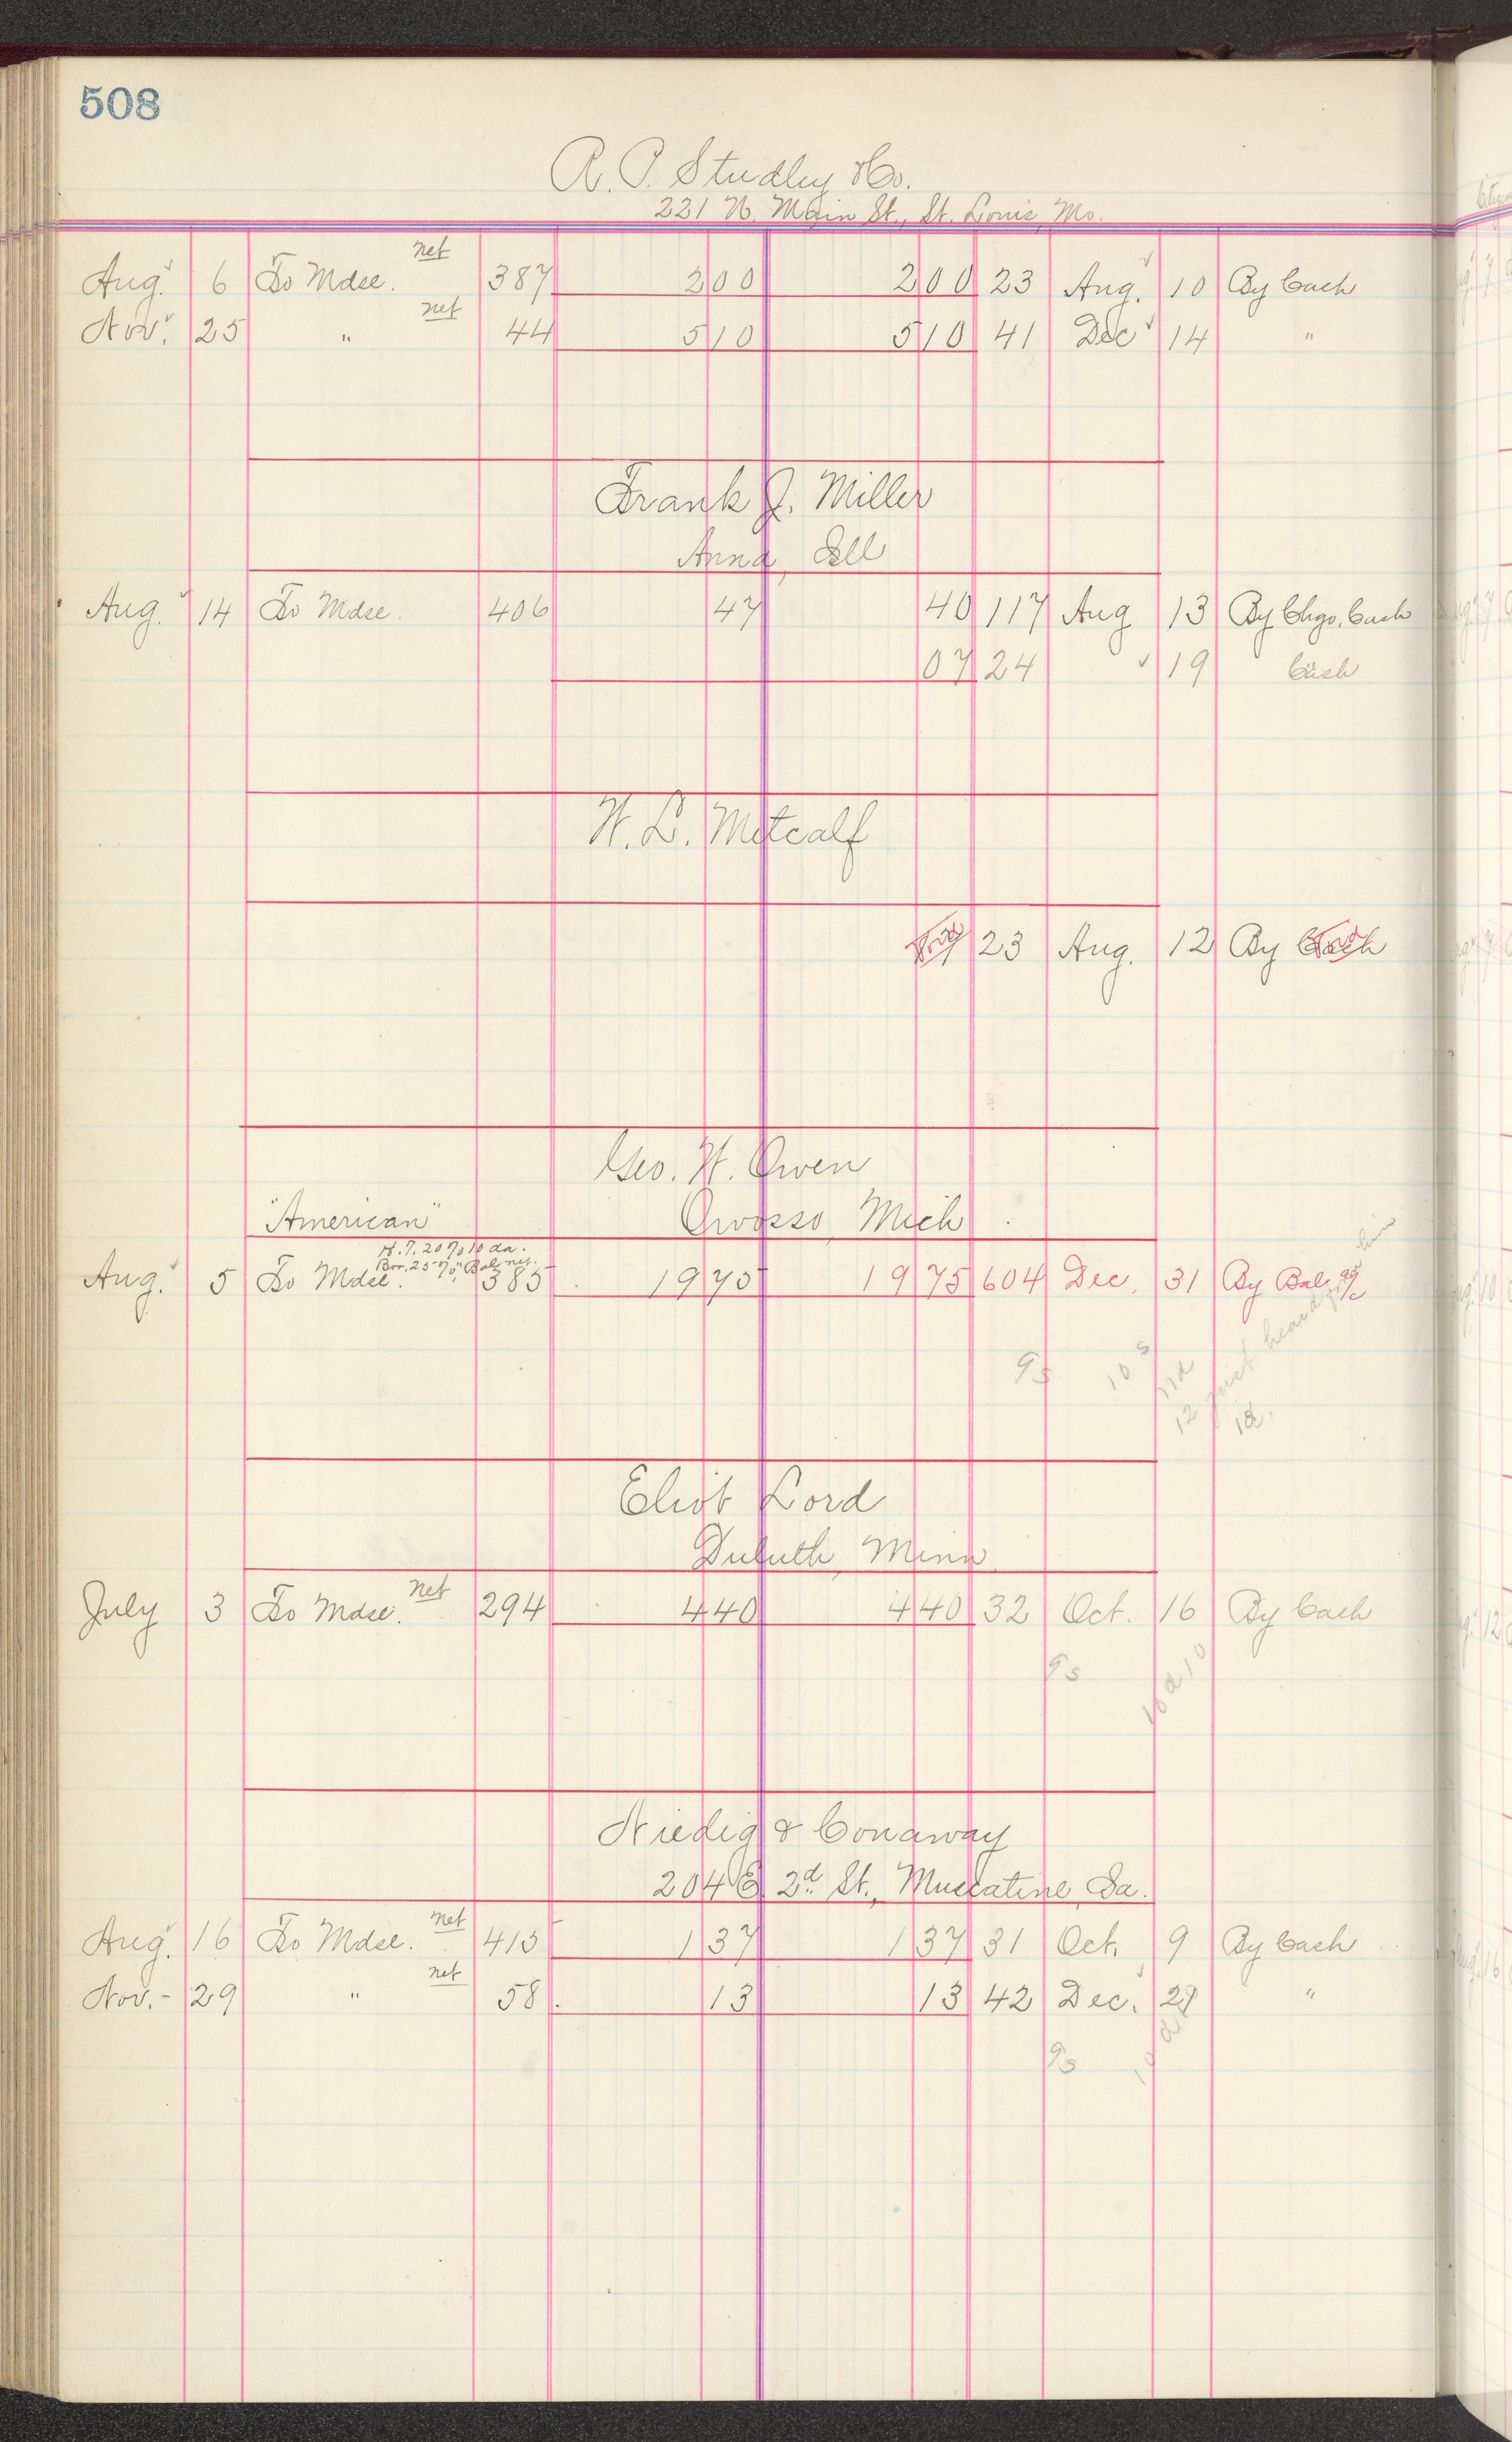 508
R. P. Studley & Co.
221 N. Main St., St. Louis, Mo.
Aug. 6 To Mdse. net 387 2 00 2 00 23 Aug. 10 By Cash
Nov. 25 " net 44 5 10 5 10 41 Dec 14 "
Frank J. Miller
Anna, Ill
Aug. 14 To Mdse. 406 47 40 117 Aug 13 By Chgo. Cash
07 24 19 Cash
W. L. Metcalf
23 Aug. 12 By Cash
Geo. W. Owen
"American" Owosso, Mich
N.T. 20% 10 da.
Bor. 25% " Bal. net.
Aug. 5 To Mdse. 385 19 75 19 75 604 Dec. 31 By Bal a/c
9s 10s 11d
12 18.
Eliot Lord
Duluth, Minn
July 3 To Mdse. net 294 4 40 4 40 32 Oct. 16 By Cash
9s
Niedig & Conaway
204 E. 2d. St., Muscatine, Ia.
Aug. 16 To Mdse. net 415 1 37 1 37 31 Oct. 9 By Cash
Nov. - 29 " net 58 13 13 42 Dec. 27 "
9s